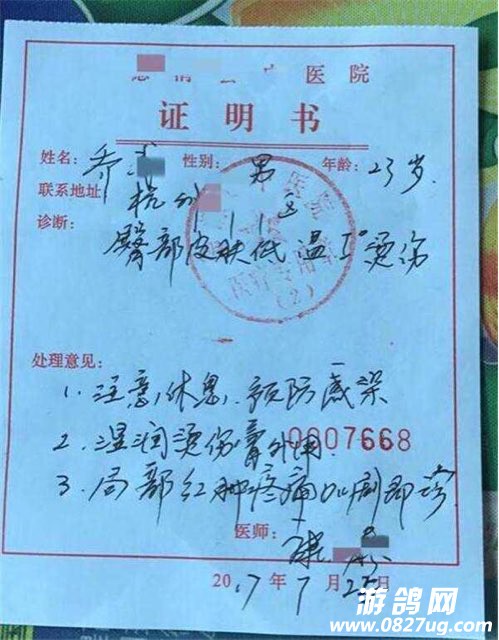 医院
证明书
姓名:乔 性别:男 年龄:23岁
联系地址 杭州
诊断:
臀部皮肤低温I°烫伤
处理意见:
1. 注意休息,预防感染
2. 湿润烫伤膏外用
0807668
3. 局部红肿疼痛加剧即诊
医师:
2017年7月25日
游鸽网
www.0827ug.com